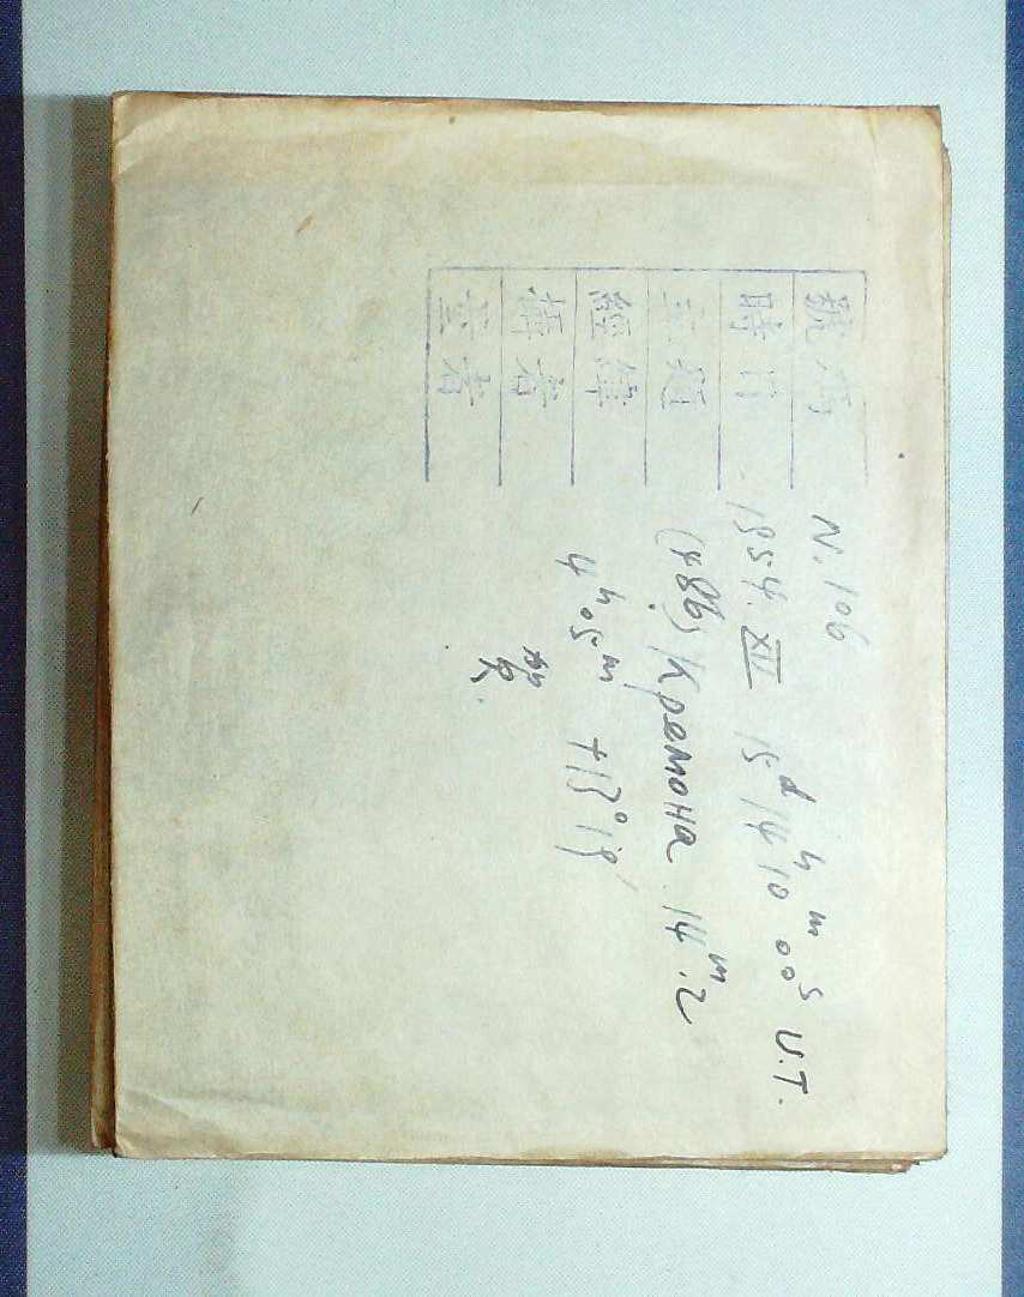 號碼 N. 106
時間 1954. XII 15ᵈ 14ʰ 10ᵐ 00ˢ U.T.
主題 (486) Кремона 14ᵐ.2
經緯 4ʰ05ᵐ +13°19′
攝者
查者